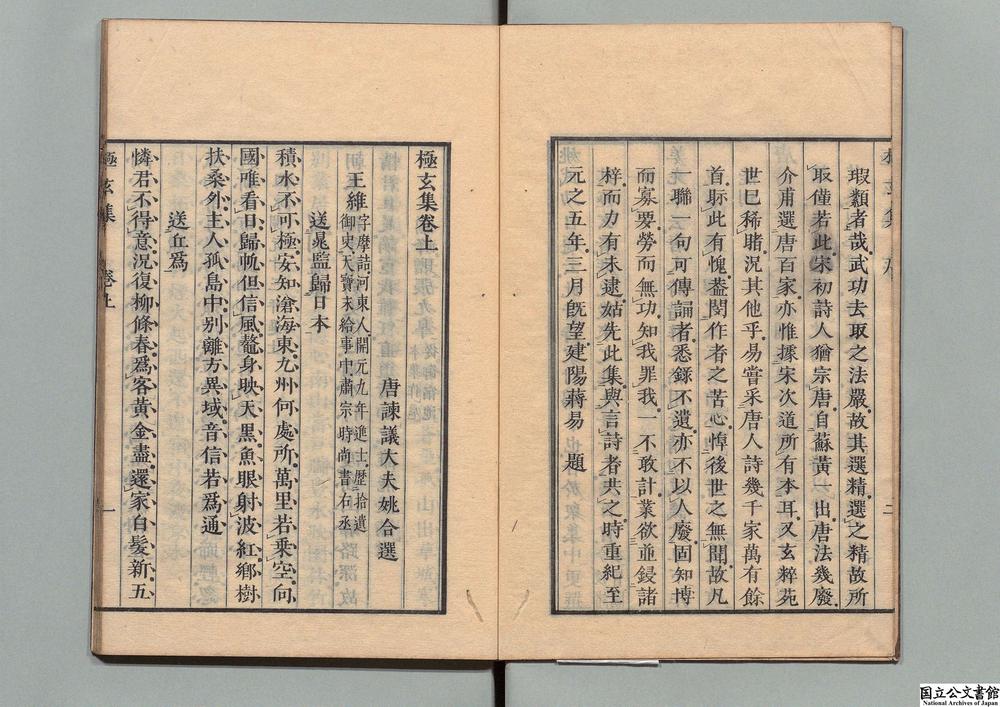 瑕纇者哉武功去取之法嚴故其選精選之精故所
取僅若此宋初詩人猶宗唐自蘇黃一出唐法幾廢
介甫選唐百家亦惟據宋次道所有本耳又玄粹苑
世已稀睹況其他乎易嘗采唐人詩幾千家萬有餘
首眎此有愧葢閔作者之苦心悼後世之無聞故凡
一聯一句可傳誦者悉錄不遺亦不以人廢固知博
而寡要勞而無功知我罪我一不敢計業欲並鋟諸
梓而力有未逮姑先此集與言詩者共之時重紀至
元之五年三月旣望建陽蔣易題
極玄集卷上
唐諫議大夫姚合選
王維字摩詰河東人開元九年進士歷拾遺
御史天寶末給事中肅宗時尚書右丞
送晁監歸日本
積水不可極安知滄海東九州何處所萬里若乘空向
國唯看日歸帆但信風鼇身映天黑魚眼射波紅鄉樹
扶桑外主人孤島中别離方異域音信若爲通
送丘爲
憐君不得意況復柳條春爲客黃金盡還家白髮新五
極玄集
卷上
一
国立公文書館
National Archives of Japan